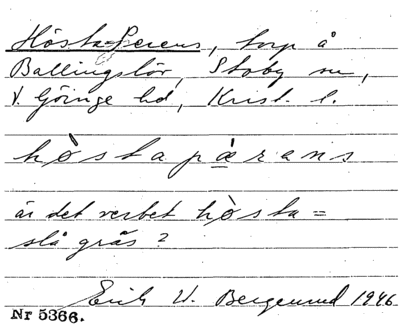 Hösta-Perens, torp å
Ballingslöv, Stoby sn,
V. Göinge hd, Krist. l.
hòstapæ̀rans
är det verbet hòsta =
slå gräs?
Erik W. Bergenrud 1946
Nr 5366.